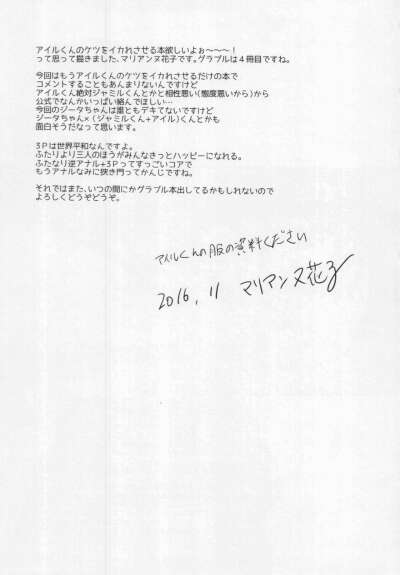 アイルくんのケツをイカれさせる本欲しいよぉ～～～！
って思って描きました、マリアンヌ花子です。グラブルは４冊目ですね。
今回はもうアイルくんのケツをイカれさせるだけの本で
コメントすることもあんまりないんですけど
アイルくん絶対ジャミルくんとかと相性悪い(態度悪いから)から
公式でなんかいっぱい絡んでほしい…
今回のジータちゃんは誰ともデキてないんですけど
ジータちゃん×(ジャミルくん+アイル)くんとかも
面白そうだなって思います。
３Ｐは世界平和なんですよ。
ふたりより三人のほうがみんなきっとハッピーになれる。
ふたなり逆アナル+３Ｐってすっごいコアで
もうアナルなみに狭き門ってかんじですね。
それではまた、いつの間にかグラブル本出してるかもしれないので
よろしくどうぞどうぞ。
アイルくんの服の資料ください
2016,11 マリアンヌ花子